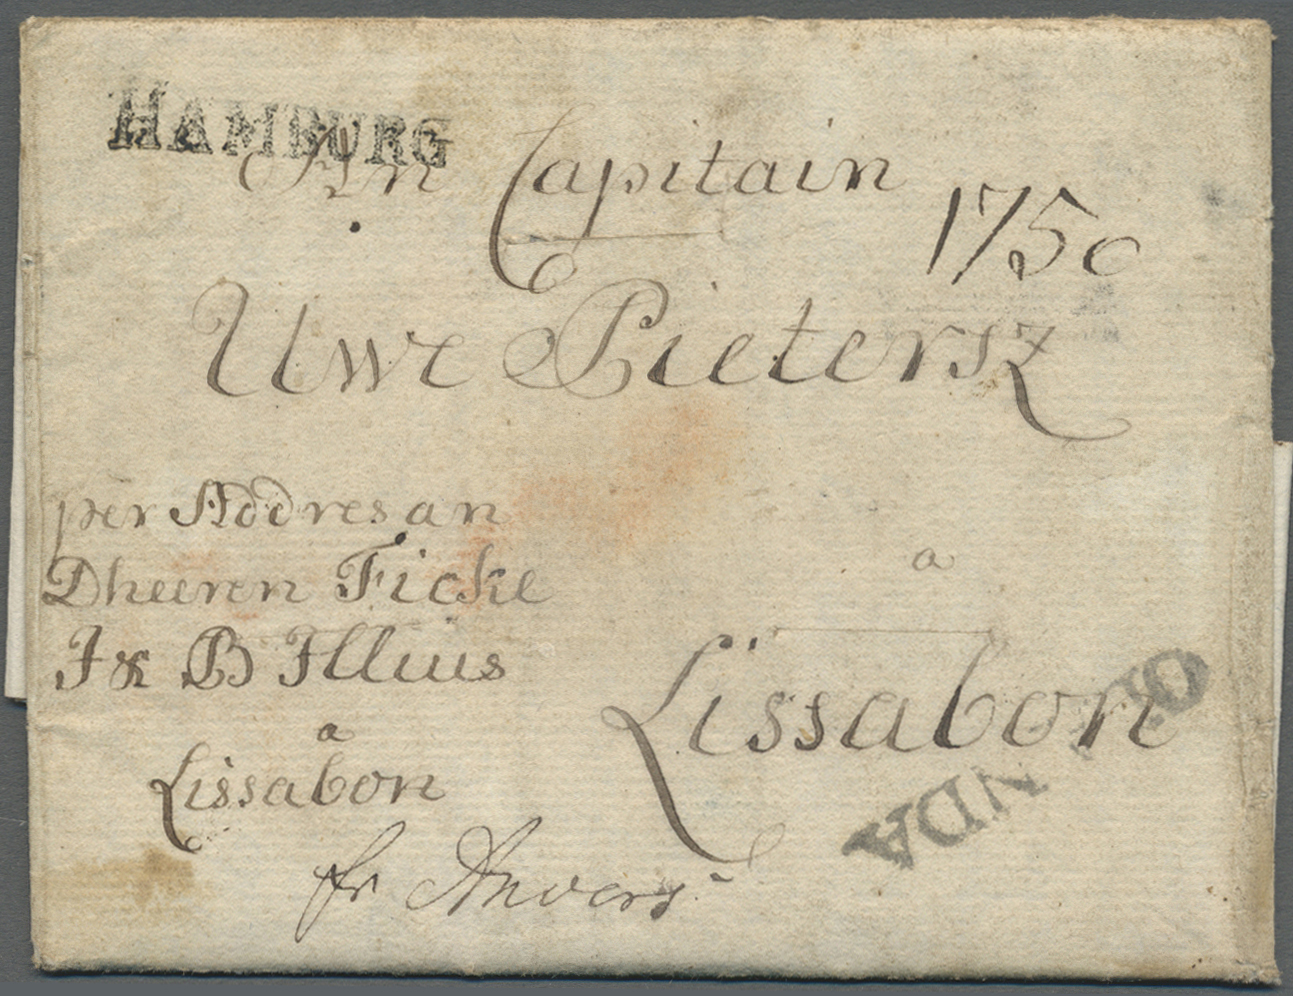 HAMBURG
An Capitain
1750
Uwe Pietersz
per Addres an
Dheeren Ficke
J & B Illius
a
Lissabon
a
Lissabon
fr Anvers